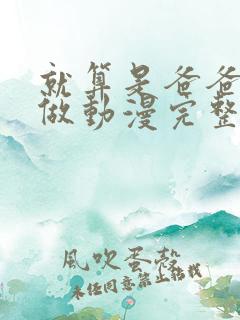 就算是爸爸
做動漫完整
風吹蛋殼
未经同意禁止转载